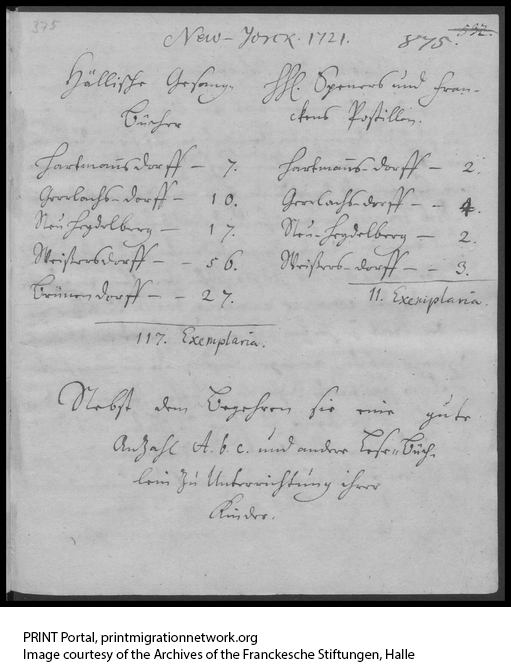 375
New-Yorck. 1721.
875.
Hällische Gesang-
Bücher
Hartmans dorff - 7.
Gerlachs-dorff - 10.
Neu Heydelberg - 17.
Weisersdorff - - 56.
Brunnendorff - - 27.
117. Exemplaria.
HH. Speners und Fran-
ckens Postillen.
Hartmans-dorff - 2.
Gerlachs-dorff - - 4.
Neu-Heydelberg - 2.
Weisers-dorff - - 3.
11. Exemplaria.
Nebst dem Begehren sie eine gute
Anzahl A. b. c. und andere Lese-Büch-
lein zu Unterrichtung ihrer
Kinder.
PRINT Portal, printmigrationnetwork.org
Image courtesy of the Archives of the Franckesche Stiftungen, Halle